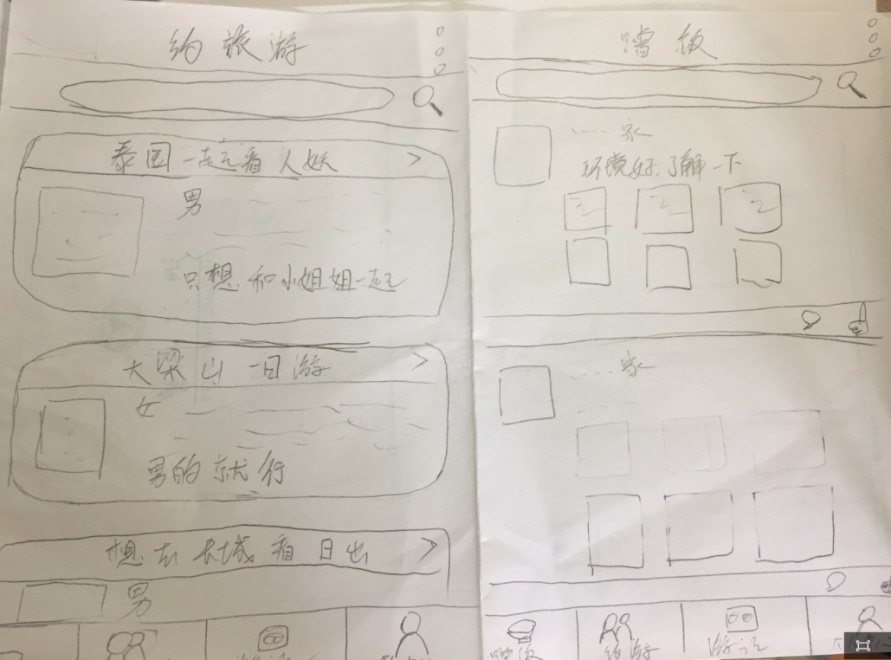 约旅游
泰国一起去看人妖
男
只想和小姐姐一起去
大梁山一日游
女
男的就行
想去长城看日出
男
噌饭
家
环境好.了解一下
家
约游